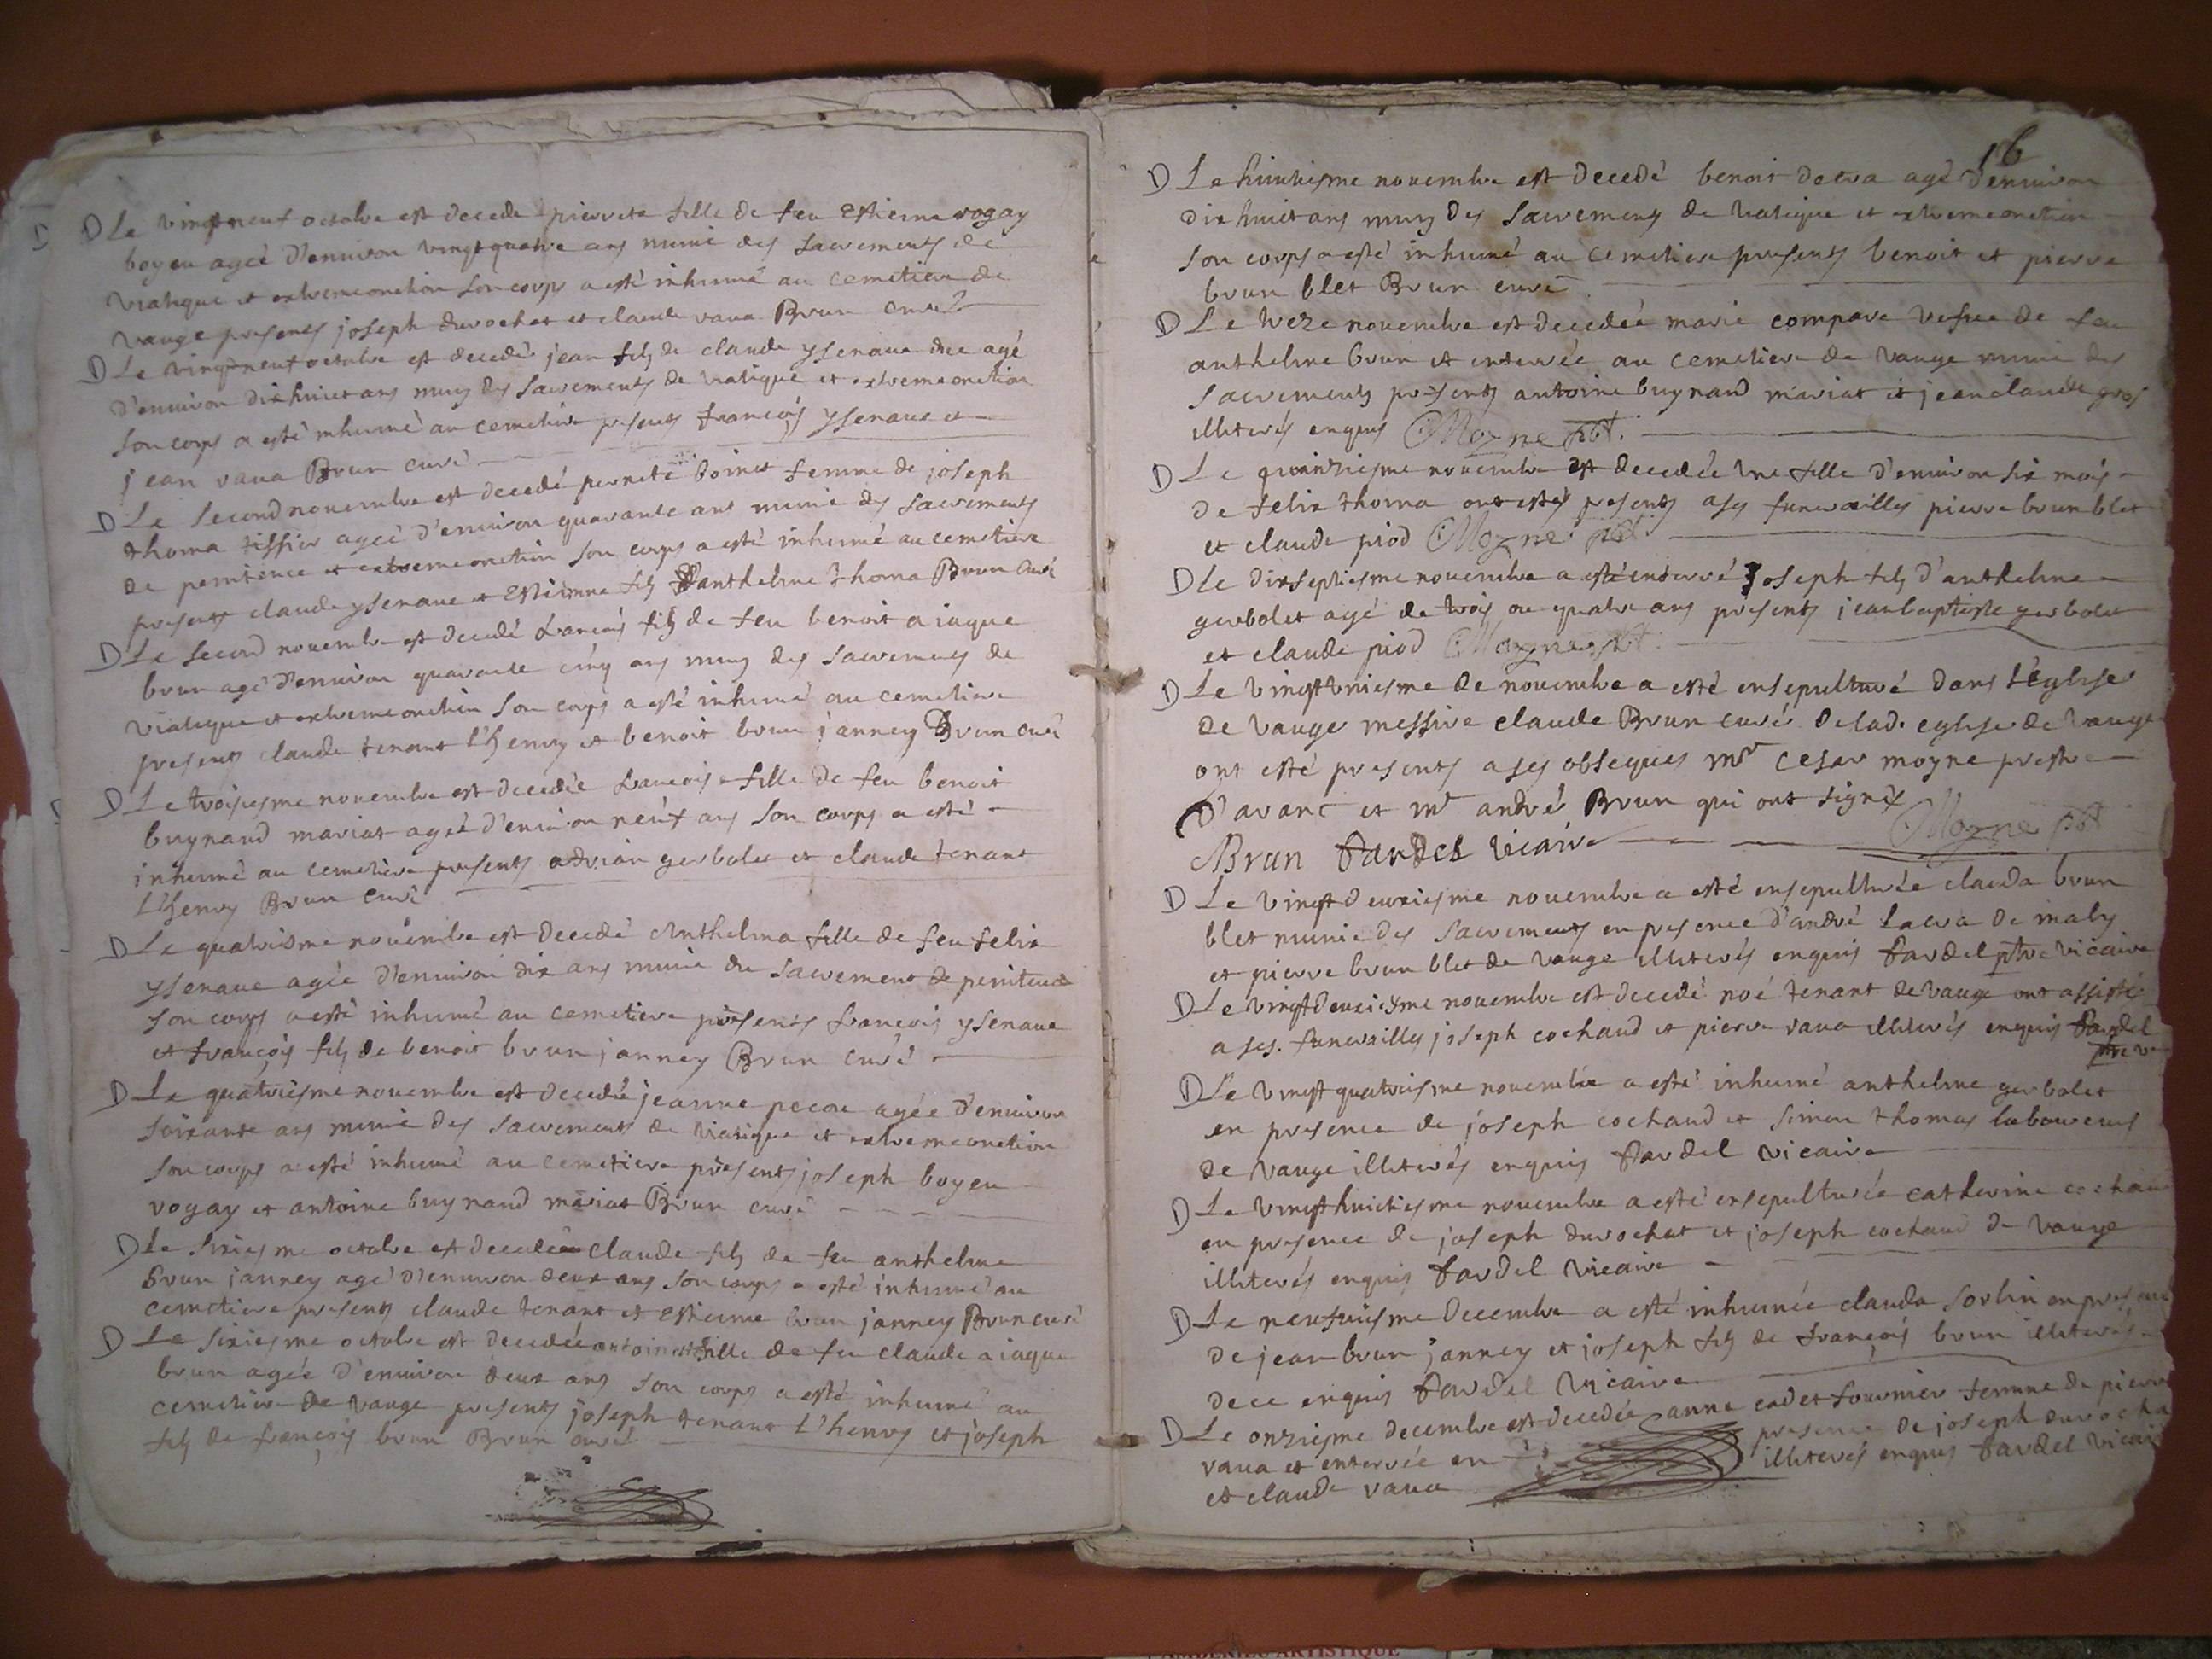 D Le vingt neuf octobre est decede pierrete fille de feu Estienne vogay
boyeu agée d'environ vingt quatre ans munie des sacrements de
viatique et extremeonction son corps a esté inhumé au cemetiere de
vauge presents joseph durochat et claude vaua Brun curé
D Le vingt neuf octobre est decedé jean fils de claude ysenaue agé
d'environ dix huict ans muny des sacrements de viatique et extremeonction
son corps a esté inhumé au cemetiere presents françois ysenaue et
jean vaua Brun curé
D Le second novembre est decedé pernete boinet femme de joseph
thoma tissier agée d'environ quarante ans munie des sacrements
de penitence et extremeonction son corps a esté inhumé au cemetiere
presents claude ysenaue et Estienne fils d'anthelme Thoma Brun curé
D Le second novembre est decedé françois fils de feu benoit a iaque
brun agé d'environ quarante cinq ans muny des sacrements de
viatique et extremeonction son corps a esté inhumé au cemetiere
presents claude tenant l'henry et benoit brun janney Brun curé
D Le troisiesme novembre est decedée françoise fille de feu benoit
buynand mariat agée d'environ neuf ans son corps a esté
inhumé au cemetiere presents adrian gerbolet et claude tenant
l'henry Brun curé
D Le quatriesme novembre est decedé Anthelma fille de feu felix
ysenaue agée d'environ dix ans munie du sacrement de penitence
son corps a esté inhumé au cemetiere presents françois ysenaue
et françois fils de benoit brun janney Brun curé
D Le quatriesme novembre est decedée jeanne agée d'environ
soixante ans munie des sacrements de viatique et extremeonction
son corps a esté inhumé au cemetiere presents joseph boyeu
vogay et antoine buynand mariat Brun curé
D Le sixiesme octobre est decedé claude fils de feu anthelme
Brun janney agé d'environ deux ans son corps a esté inhumé au
cemetiere presents claude tenant et estienne brun janney Brun curé
D Le sixiesme octobre est decedée antoinet fille de feu claude a iaque
brun agée d'environ deux ans son corps a esté inhumé au
cemetiere de vauge presents joseph tenant l'henry et joseph
fils de françois brun Brun curé
16
D Le huictiesme novembre est decedé benoit agé d'environ
dix huict ans muny des sacrements de viatique et extremeonction
son corps a esté inhumé au cemetiere presents benoit et pierre
brun blet Brun curé
D Le treze novembre est decedée marie compare vefve de feu
anthelme brun et enterrée au cemetiere de vauge munie des
sacrements presents antoine buynand mariat et jean claude gros
illiterés enquis Moyne pbt.
D Le quinziesme novembre est decedée une fille d'environ six mois
de felix thoma ont estés presents a ses funerailles pierre brun blet
et claude piod Moyne pbt.
D Le dixseptiesme novembre a esté enterré Joseph fils d'anthelme
gerbolet agé de trois ou quatre ans presents jean baptiste gerbolet
et claude piod Moyne pbt.
D Le vingt uniesme de novembre a esté ensepulturé dans l'Eglise
de vauge messire claude Brun curé de lad. eglise de vauge
ont esté presents a ses obseques mr cesar moyne prestre
d'aranc et mr andré Brun qui ont signés Moyne pbt
Brun Fardel vicaire
D Le vingt deuxiesme novembre a esté ensepulturée clauda brun
blet munie des sacrements en presence d'andré lacra de
et pierre brun blet de vauge illiterés enquis Fardel ptre vicaire
D Le vingt deuxiesme novembre est decedé noé tenant de vauge ont assisté
a ses funerailles joseph cochaud et pierre vaua illiterés enquis Fardel
ptre
D Le vingt quatriesme novembre a esté inhumé anthelme gerbolet
en presence de joseph cochaud et simon thomas laboureurs
de vauge illiterés enquis Fardel vicaire
D Le vingt huictiesme novembre a esté ensepulturée catherine cochaud
en presence de joseph durochat et joseph cochaud de vauge
illiterés enquis Fardel vicaire
D Le neufviesme decembre a esté inhumée clauda sorlin en presence
de jean brun janney et joseph fils de françois brun illiterés
de ce enquis Fardel vicaire
D Le onziesme decembre est decedée anne cadet fournier femme de pierre
vaua et enterrée en presence de joseph durocha
et claude vaua illiterés enquis Fardel vicaire